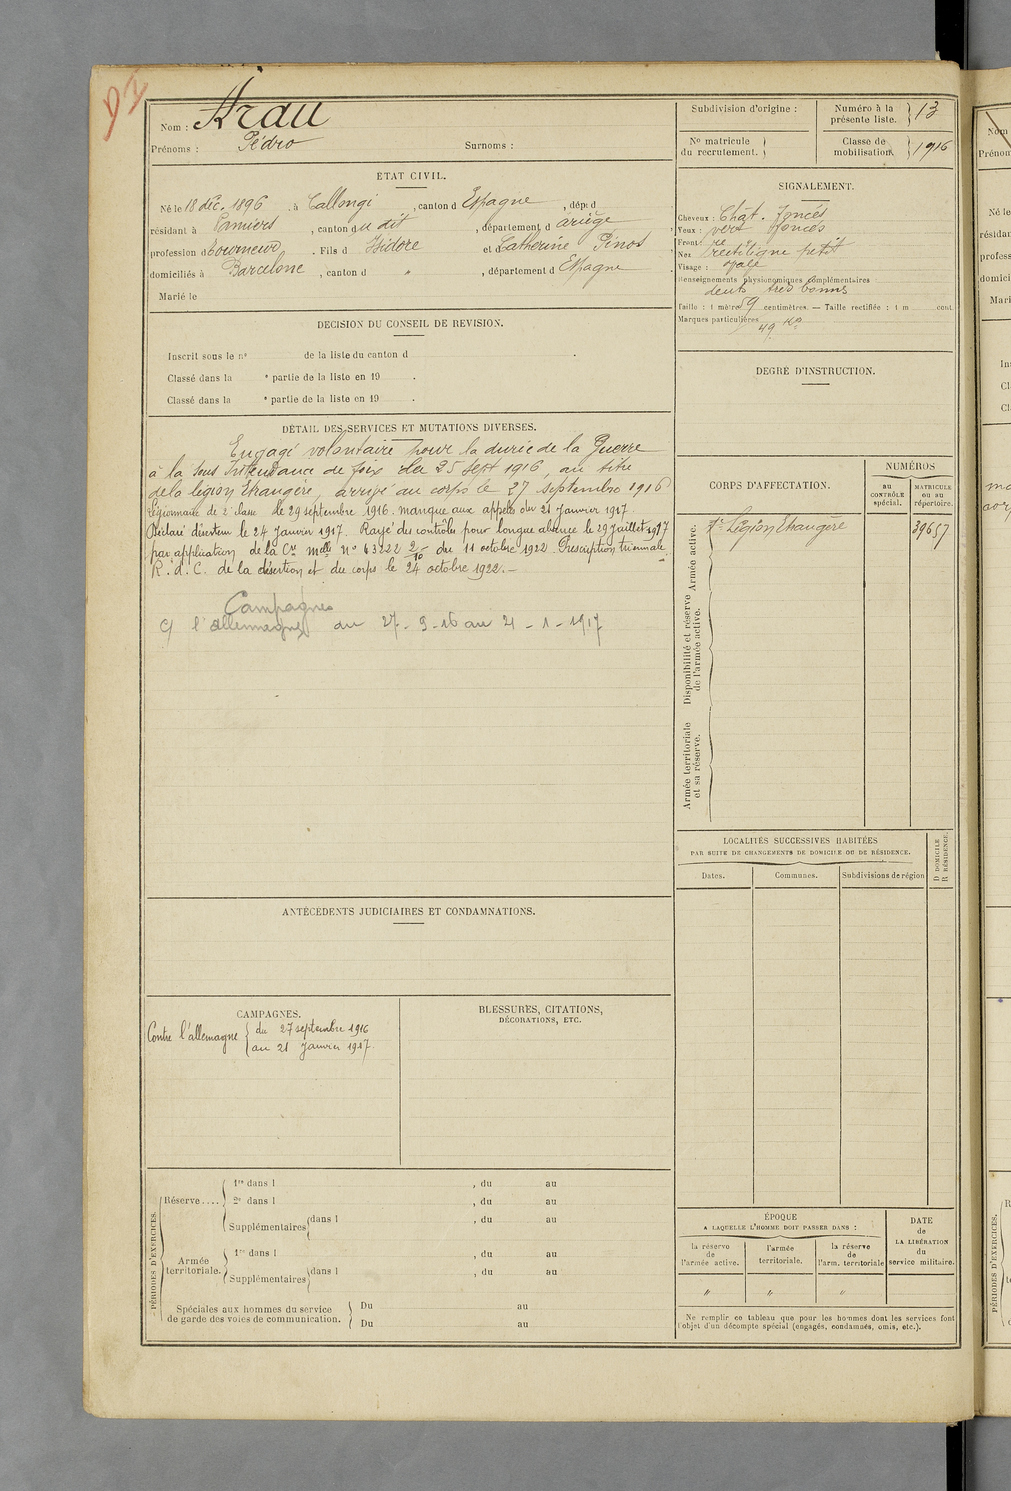 Nom : Arau
Prénoms : Pédro Surnoms :
ÉTAT CIVIL.
Né le 18 déc. 1896, à Callongi, canton d Espagne, dép. d
résidant à Pamiers, canton du dit, département d ariège,
profession d Tourneur. Fils d Isidore et d Catherine Pinos
domiciliés à Barcelone, canton d " , département d Espagne.
Marié le
DÉCISION DU CONSEIL DE REVISION.
Inscrit sous le n° de la liste du canton d .
Classé dans la e partie de la liste en 19 .
Classé dans la e partie de la liste en 19 .
DÉTAIL DES SERVICES ET MUTATIONS DIVERSES.
Engagé volontaire pour la durée de la Guerre
à la Sous Intendance de foix le 25 Sept 1916, au titre
de la légion Etrangère, arrivé au corps le 27 septembre 1916
Légionnaire de 2e classe le 29 septembre 1916. manque aux appels du 21 Janvier 1917.
Déclaré déserteur le 24 Janvier 1917. Rayé des contrôles pour longue absence le 29 Juillet 1917
par application de la Cre Melle N° 43222 2/10 du 11 octobre 1922. Prescription triennale.
R. d. C. de la désertion et du corps le 24 octobre 1922.-
Campagnes
C/ l'allemagne du 27-9-16 au 21-1-1917
ANTÉCÉDENTS JUDICIAIRES ET CONDAMNATIONS.
CAMPAGNES.
Contre l'allemagne
du 27 septembre 1916
au 21 Janvier 1917.
BLESSURES, CITATIONS,
DÉCORATIONS, ETC.
PÉRIODES D'EXERCICES.
Réserve....
1re dans l , du au
2e dans l , du au
Supplémentaires dans l , du au
Armée
territoriale.
1re dans l , du au
Supplémentaires dans l , du au
Spéciales aux hommes du service
de garde des voies de communication.
Du au
Du au
Subdivision d'origine :
Numéro à la
présente liste. 13
N° matricule
du recrutement.
Classe de
mobilisation. 1916
SIGNALEMENT.
Cheveux : Chât. foncés
Yeux : vert foncés
Front :
Nez rectiligne petit
Visage : ovale
Renseignements physionomiques complémentaires
dents très bonnes
Taille : 1 mètre 59 centimètres. — Taille rectifiée : 1 m cent
Marques particulières
49 Ko
DEGRÉ D'INSTRUCTION.
CORPS D'AFFECTATION.
NUMÉROS
au
CONTRÔLE
spécial.
MATRICULE
ou au
répertoire.
Armée active.
Légion Etrangère 39657
Disponibilité et réserve
de l'armée active.
Armée territoriale
et sa réserve.
LOCALITÉS SUCCESSIVES HABITÉES
PAR SUITE DE CHANGEMENTS DE DOMICILE OU DE RÉSIDENCE.
D DOMICILE
R RÉSIDENCE.
Dates. Communes. Subdivisions de région
ÉPOQUE
A LAQUELLE L'HOMME DOIT PASSER DANS :
la réserve
de
l'armée active.
l'armée
territoriale.
la réserve
de
l'arm. territoriale
DATE
de
LA LIBÉRATION
du
service militaire.
" " "
Ne remplir ce tableau que pour les hommes dont les services font
l'objet d'un décompte spécial (engagés, condamnés, omis, etc.).